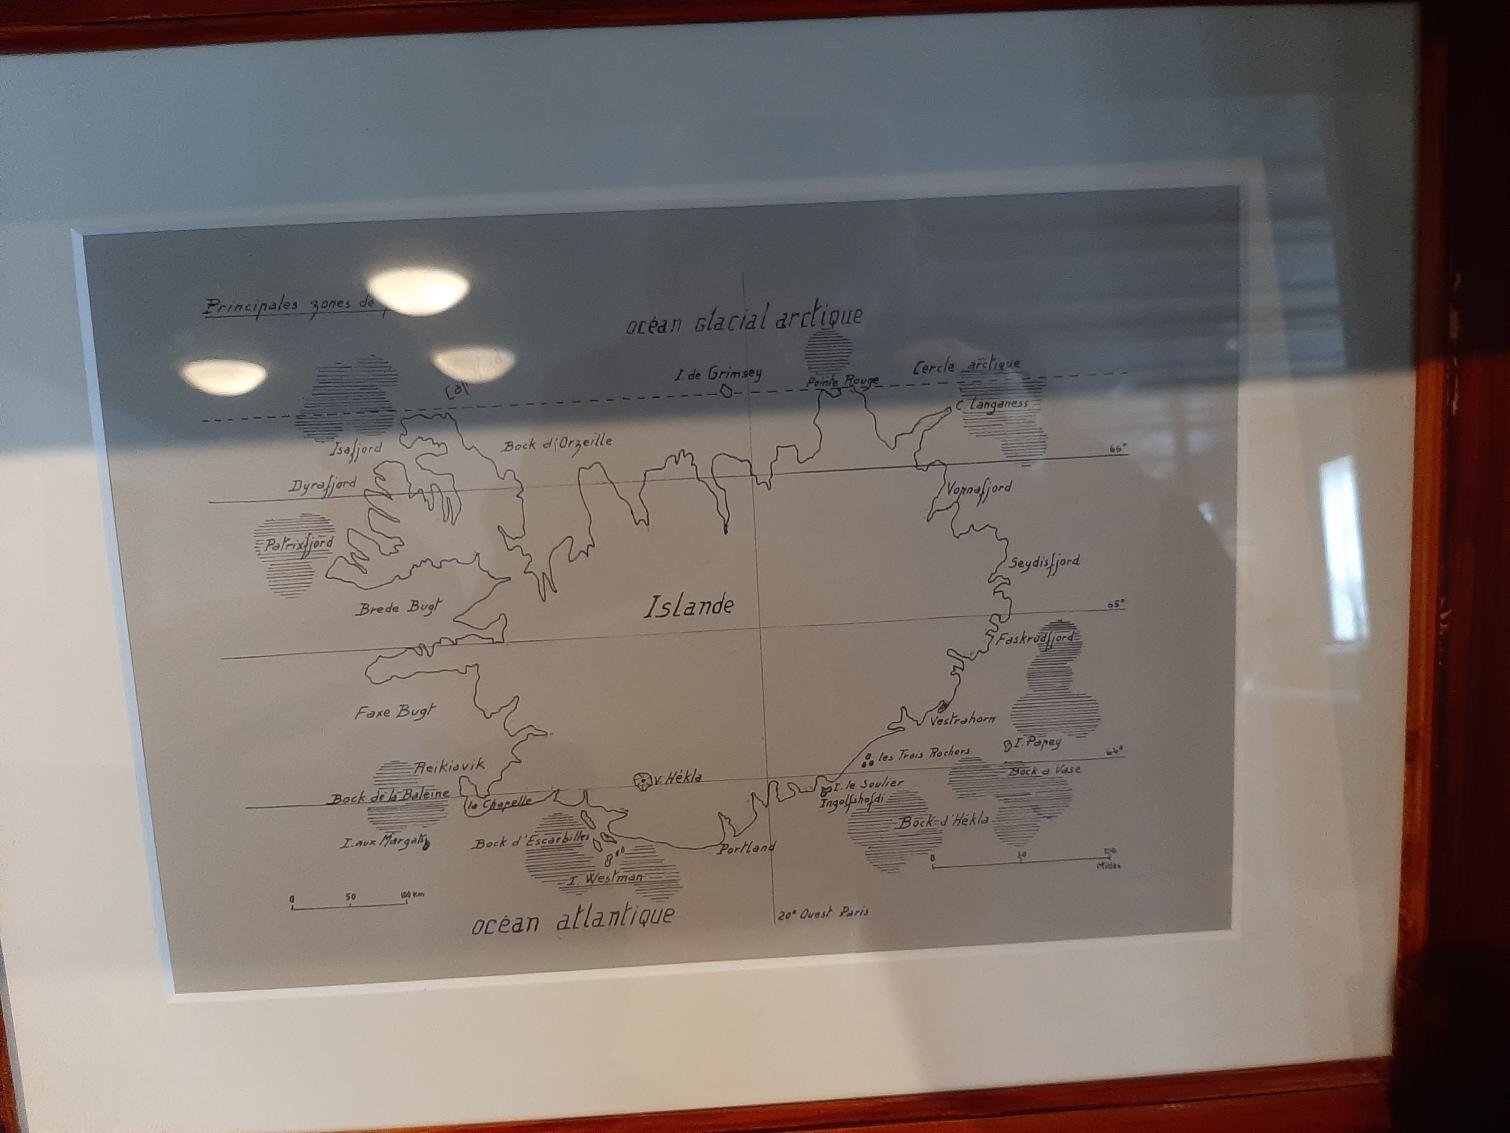 Principales zones de
océan Glacial arctique
I de Grimsey
Pointe Rouge
Cercle arctique
Cap
C. Langaness
Isafjord
Bock d'Orzeille
66°
Dyrafjord
Vopnafjord
Patrixfjord
Seydisfjord
Brede Bugt
Islande
65°
Faskrudfjord
Faxe Bugt
Vestrahorn
I. Papey
les Trois Rochers
Reikiavik
V. Hékla
Bock à Vase
Bock de la Baleine
la Chapelle
I. le Soulier
Ingolfshofdi
Bock d'Hékla
I. aux Margats
Bock d'Escarbilles
Portland
I. Westman
0 50 100 km
0
Milles
océan atlantique
20° Ouest Paris